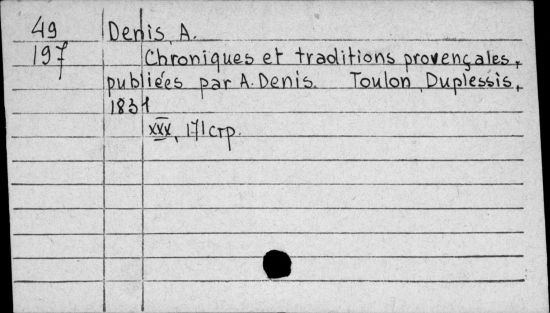 49 Denis, A.
197 Chroniques et traditions provençales,
publiées par A. Denis. Toulon, Duplessis,
1831
XXX, 171 стр.